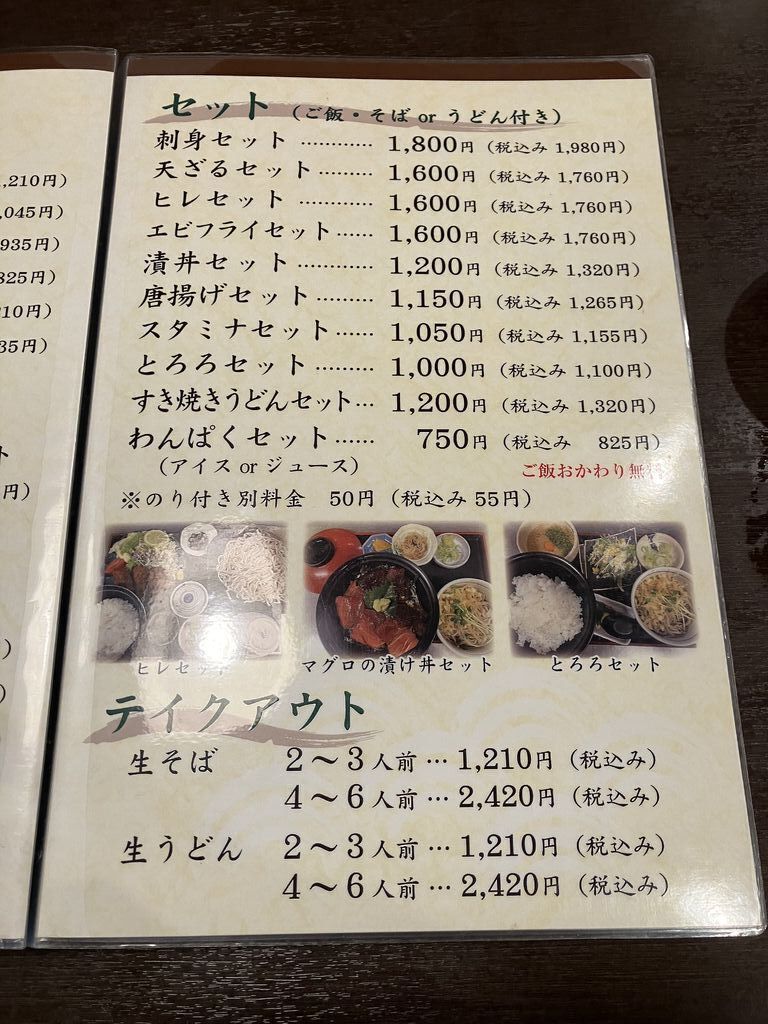 ,210円)
,045円)
935円)
825円)
10円)
35円)
ト
円)
)
)
)
セット (ご飯・そば or うどん付き)
刺身セット ………… 1,800円 (税込み 1,980円)
天ざるセット ……… 1,600円 (税込み 1,760円)
ヒレセット ………… 1,600円 (税込み 1,760円)
エビフライセット …… 1,600円 (税込み 1,760円)
漬丼セット ………… 1,200円 (税込み 1,320円)
唐揚げセット ……… 1,150円 (税込み 1,265円)
スタミナセット …… 1,050円 (税込み 1,155円)
とろろセット ……… 1,000円 (税込み 1,100円)
すき焼きうどんセット… 1,200円 (税込み 1,320円)
わんぱくセット …… 750円 (税込み 825円)
(アイス or ジュース)
ご飯おかわり無料
※のり付き別料金 50円 (税込み 55円)
ヒレセット
マグロの漬け丼セット
とろろセット
テイクアウト
生そば 2～3人前 … 1,210円 (税込み)
4～6人前 … 2,420円 (税込み)
生うどん 2～3人前 … 1,210円 (税込み)
4～6人前 … 2,420円 (税込み)